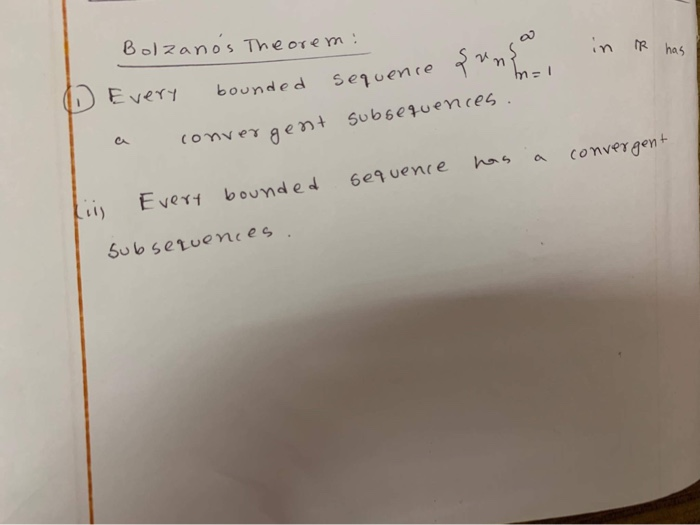 Bolzano's Theorem:
(i) Every bounded sequence {xn}∞n=1 in ℝ has
a convergent subsequences.
(ii) Every bounded sequence has a convergent
subsequences.